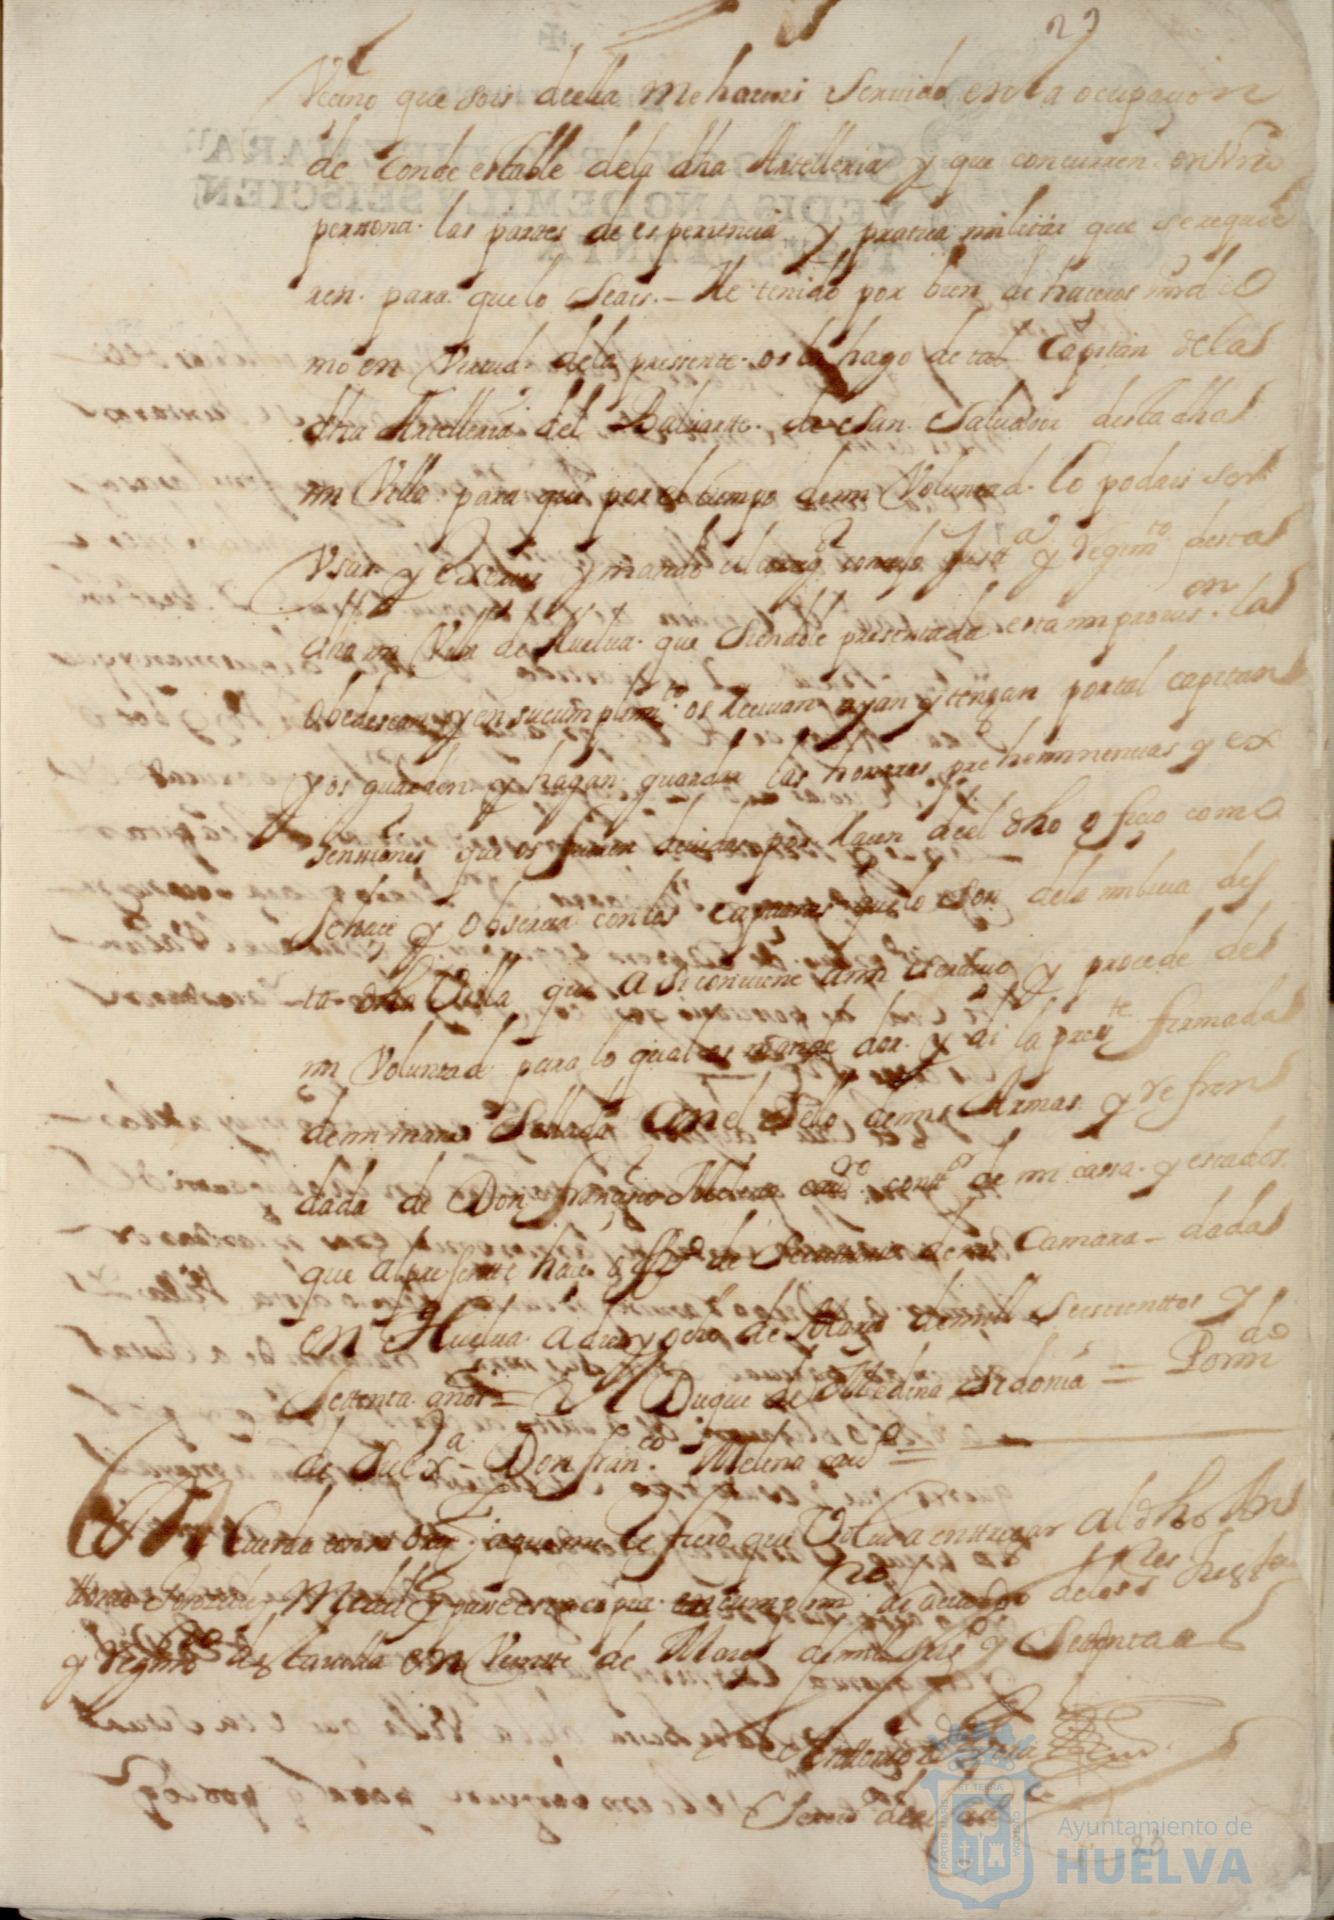 29
Vecino que sois de ella me haveis servido en la ocupacion
de Condestable de la dha Artelleria y que concurren en Vra
persona las partes de esperiencia y pratica militar que se requie
ren para que lo seais. He tenido por bien de haceros mrd co
mo en Virtud de la pressente os la hago de tal Capitan de la
dha Artelleria del Baluarte de San Salvador desta dha
mi Villa para que por el tiempo de mi Voluntad lo podais ser
Usar y exercer y mando al conzejo justa y regimto desta
dha mi Villa de Huelva que siendole presentada esta mi provis.on la
obedescan y en su cumplimto os recivan ayan y tengan por tal capitan
y os guarden y hagan guardar las honrras preheminencias y ex
sensiones que os fueren devidas por raçon de el dho oficio como
se hace y observa con los capitanes que lo son de la milicia des
ta dha Villa que asi conviene a mi servicio y procede de
mi Voluntad para lo qual os mande dar y di la preste firmada
de mi mano sellada con el sello de mis Armas y refren
dada de Don francisco Molina cavdo contor de mi cassa y estados
que al pressente hace offo de Secretario de mi Camara dada
en Huelva a dies y ocho de Março de mill seiscienttos y
settenta años = El Duque de Medina Sidonia = Por mdo
de Su Exa Don franco Molina cavdo =
Concuerda con su orixl a que me refiero que Volvi a entregar al dho
y para esta copia en cumplimto de acuerdo de los sres Justa
y regimto desta villa en Veinte de Março de mill seiso y Settenta as
Antonio de
Serno del Cavdo
23
Ayuntamiento de
HUELVA
PORTUS MARIS ET TERRAE CUSTODIA